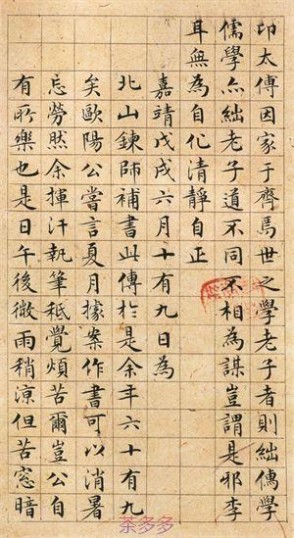 卬太傅因家于齊焉世之學老子者則絀儒學
儒學亦絀老子道不同不相為謀豈謂是邪李
耳無為自化清靜自正
嘉靖戊戌六月十有九日為
北山鍊師補書此傳於是余年六十有九
矣歐陽公嘗言夏月據案作書可以消暑
忘勞然余揮汗執筆秪覺煩苦爾豈公自
有所樂也是日午後微雨稍涼但苦窓暗
茶多多